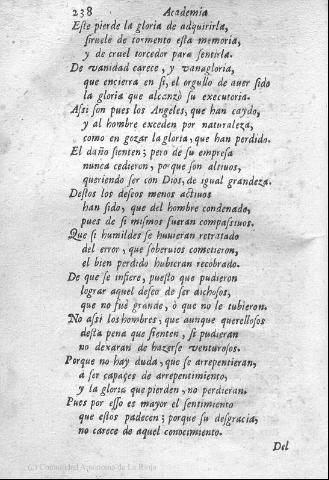 238 Academia
Este pierde la gloria de adquirirla,
siruele de tormento esta memoria,
y de cruel torcedor para sentirla.
De vanidad carece, y vanagloria,
que encierra en si, el orgullo de auer sido
la gloria que alcanzò su executoria.
Assi son pues los Angeles, que han caydo,
y al hombre exceden por naturaleza,
como en gozar la gloria, que han perdido.
El daño sienten; pero de su empresa
nunca cedieron, porque son altiuos,
queriendo ser con Dios, de igual grandeza.
Destos los deseos menos actiuos
han sido, que del hombre condenado,
pues de si mismos fueran compassiuos.
Que si humildes se huuieran retratado
del error, que soberuios cometieron,
el bien perdido hubieran recobrado.
De que se infiere, puesto que pudieron
lograr aquel deseo de ser dichosos,
que no fuè grande, ò que no le tubieron.
No assi los hombres, que aunque querellosos
desta pena que sienten, si pudieran
no dexaran de hazerse venturosos.
Porque no hay duda, que se arrepentieran,
a ser capaçes de arrepentimiento,
y la gloria que pierden, no perdieran.
Pues por esso es mayor el sentimiento
que estos padecen; porque su desgracia,
no carece de aquel conocimiento.
Del
(c) Comunidad Autónoma de La Rioja